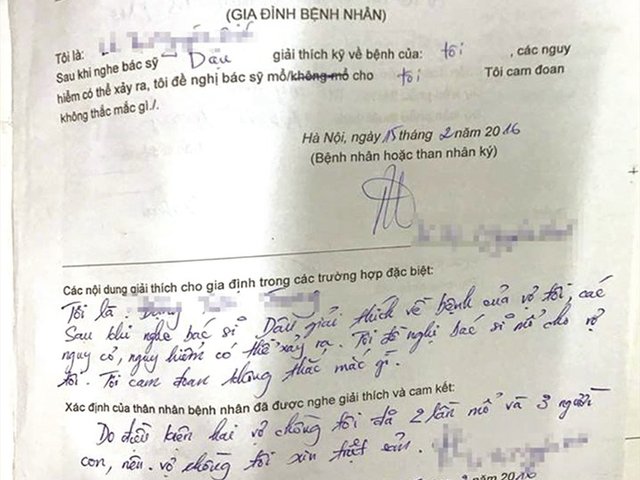 (GIA ĐÌNH BỆNH NHÂN)
Tôi là:
Sau khi nghe bác sỹ Dậu giải thích kỹ về bệnh của: tôi , các nguy
hiểm có thể xảy ra, tôi đề nghị bác sỹ mổ/không mổ cho tôi Tôi cam đoan
không thắc mắc gì./.
Hà Nội, ngày 15 tháng 2 năm 2016
(Bệnh nhân hoặc than nhân ký)
Các nội dung giải thích cho gia định trong các trường hợp đặc biệt:
Tôi là
Sau khi nghe bác sĩ Dậu giải thích về bệnh của vợ tôi, các
nguy cơ, nguy hiểm có thể xảy ra. Tôi đề nghị bác sĩ mổ cho vợ
tôi. Tôi cam đoan không thắc mắc gì.
Xác định của thân nhân bệnh nhân đã được nghe giải thích và cam kết:
Do điều kiện hai vợ chồng tôi đã 2 lần mổ và 3 người
con, nên vợ chồng tôi xin triệt sản.